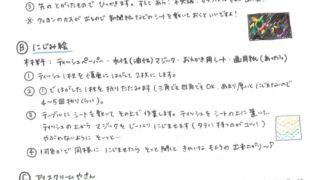 ③ 先のとがったもので ひっかきます。すると あら! 不思議
※ クレヨンのカスが出るので 新聞紙などのシートを敷いて おくといいですよ!
Ⓑ にじみ絵
材料: ティッシュペーパー・水性(油性)マジック・おえかき用シート・画用紙(あったら)
① ティッシュ1枚を慎重に はがして 2枚にします。
② ①ではがした1枚を折りたたみます (三角でも四角でも OK. あまり厚いと にじまないので
4~5回折りくらい)。
③ テーブルに シートを敷いて その上で作業します。ティッシュをシートの上に置いて、
ティッシュの上から マジックを じーっくり にじませます (タテに 持つのが コツ!)
やぶれないように そーっと…
④ 何色かで 同様に にじませたら そっと 開いて きれいな もようの 出来上がり~♪
Ⓒ アイスクリームやさん